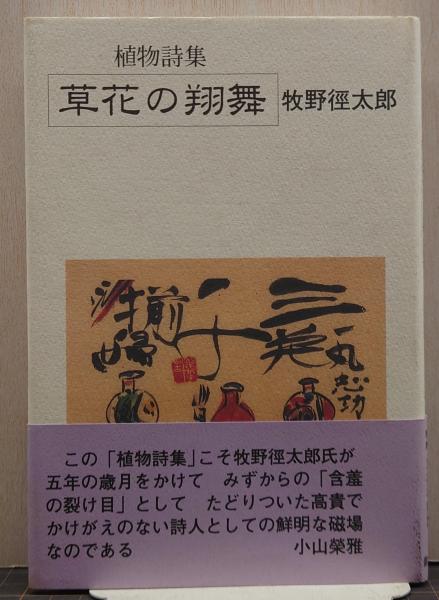 植物詩集
草花の翔舞 牧野徑太郎
この「植物詩集」こそ牧野徑太郎氏が
五年の歳月をかけて みずからの「含羞
の裂け目」として たどりついた高貴で
かけがえのない詩人としての鮮明な磁場
なのである 小山榮雅